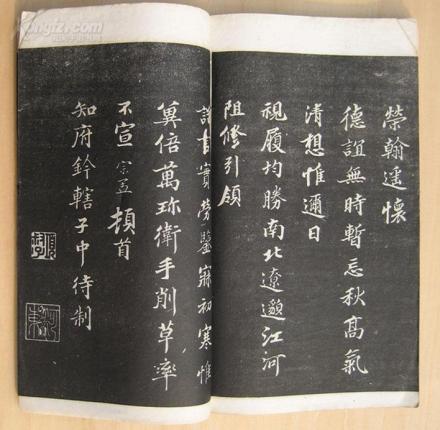 榮翰遥懷
德誼無時暫忘秋高氣
清想惟邇日
視履均勝南北遼邈江河
阻修引領
言實勞鑒寐初寒惟
兾倍萬珍衛手削草率
不宣 宗孟 頓首
知府鈐轄子中待制